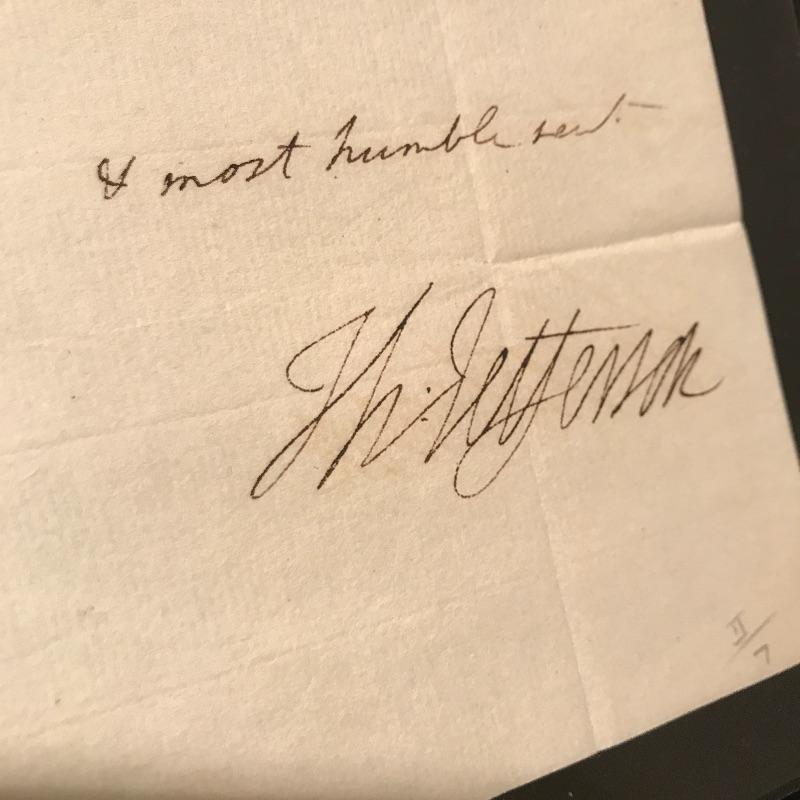 & most humble servt.
Th: Jefferson
II/7